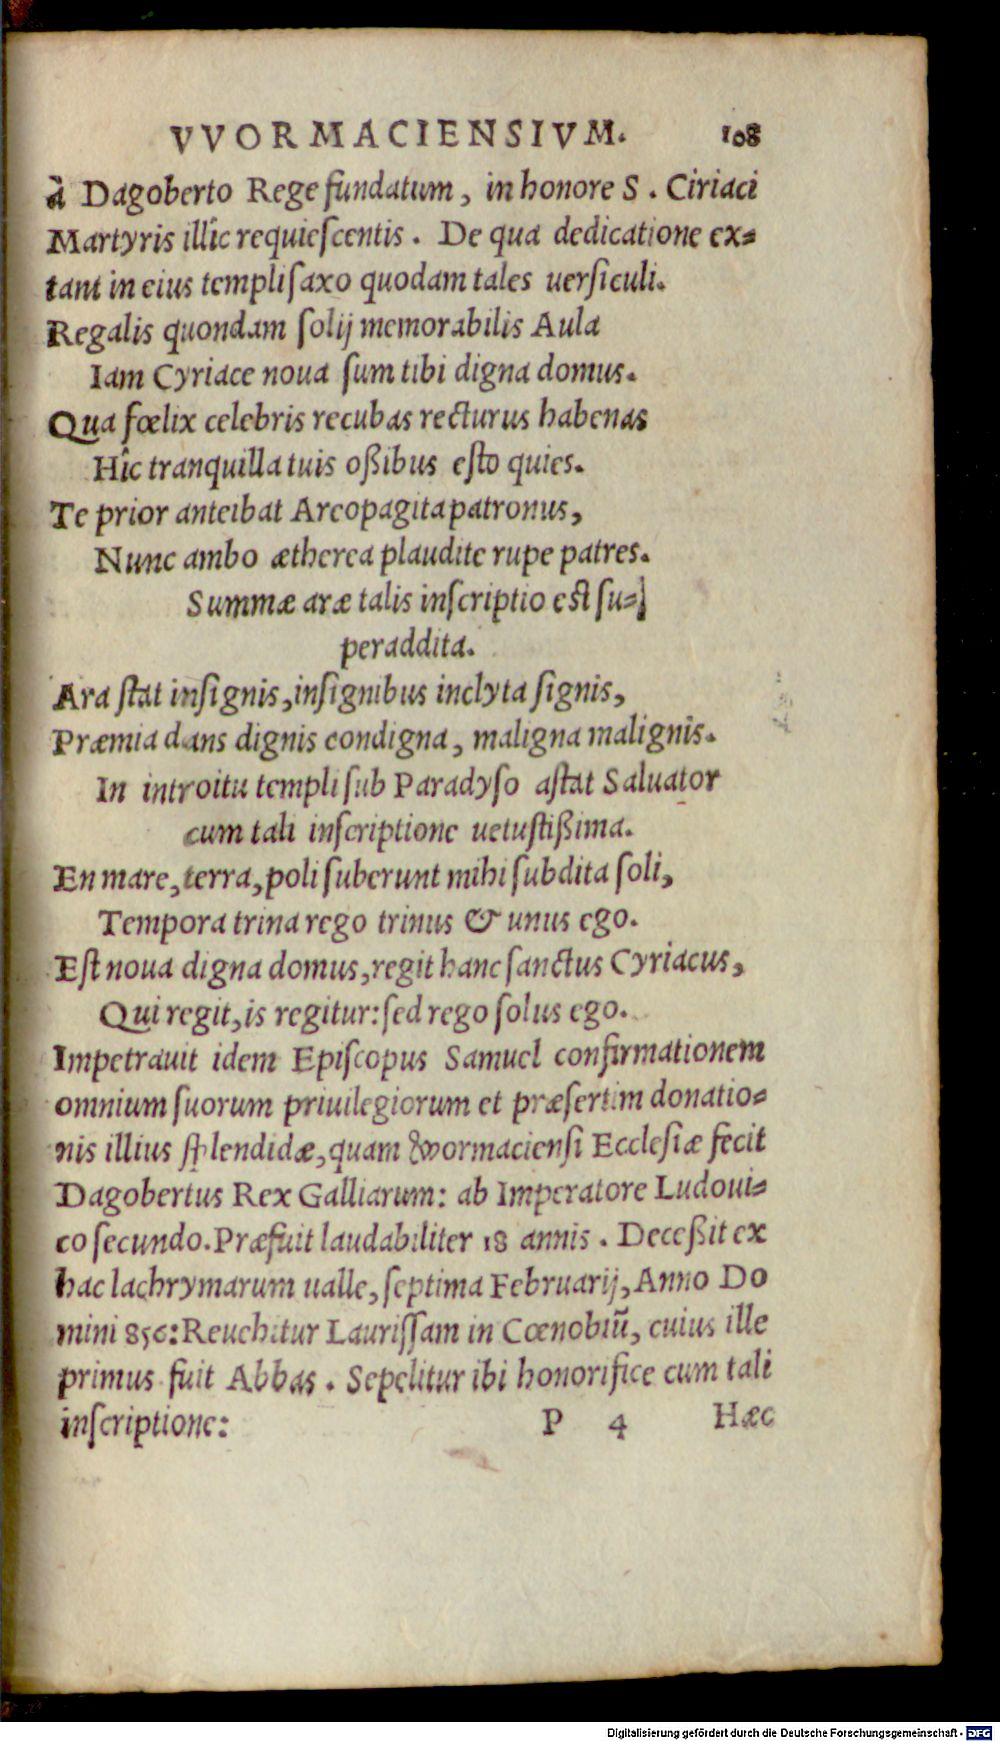 VVORMACIENSIVM. 108
à Dagoberto Rege fundatum, in honore S. Ciriaci
Martyris illîc requiescentis. De qua dedicatione ex=
tant in eius templi saxo quodam tales uersiculi.
Regalis quondam solij memorabilis Aula
Iam Cyriace noua sum tibi digna domus.
Qua fœlix celebris recubas recturus habenas
Hîc tranquilla tuis oßibus esto quies.
Te prior anteibat Areopagita patronus,
Nunc ambo ætherea plaudite rupe patres.
Summæ aræ talis inscriptio est su=
peraddita.
Ara stat insignis, insignibus inclyta signis,
Præmia dans dignis condigna, maligna malignis.
In introitu templi sub Paradyso astat Saluator
cum tali inscriptione uetustißima.
En mare, terra, poli suberunt mihi subdita soli,
Tempora trina rego trinus & unus ego.
Est noua digna domus, regit hanc sanctus Cyriacus,
Qui regit, is regitur: sed rego solus ego.
Impetrauit idem Episcopus Samuel confirmationem
omnium suorum priuilegiorum et præsertim donatio=
nis illius splendidæ, quam wormaciensi Ecclesiæ fecit
Dagobertus Rex Galliarum: ab Imperatore Ludoui=
co secundo. Præfuit laudabiliter 18 annis. Deceßit ex
hac lachrymarum ualle, septima Februarij, Anno Do
mini 856: Reuehitur Laurissam in Cœnobiũ, cuius ille
primus fuit Abbas. Sepelitur ibi honorifice cum tali
inscriptione: P 4 Hæc
Digitalisierung gefördert durch die Deutsche Forschungsgemeinschaft - DFG